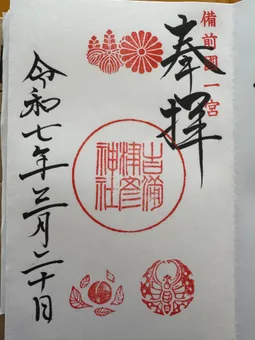 備前國一宮
奉拝
吉備津彦神社
令和七年三月二十日